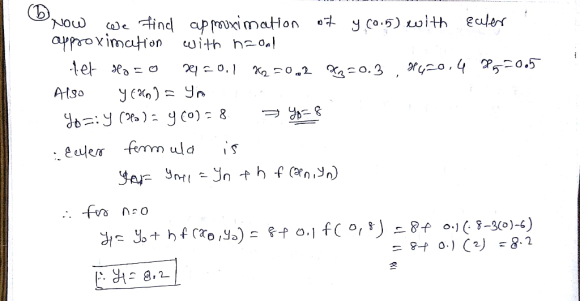 (b) Now we find approximation of y(0.5) with euler
approximation with h=0.1
let x0 = 0 x1 = 0.1 x2 = 0.2 x3 = 0.3, x4 = 0.4 x5 = 0.5
Also y(xn) = yn
y0 =: y(x0) = y(0) = 8 ⇒ y0 = 8
∴ euler formula is
yn+1 = yn + h f(xn, yn)
∴ for n=0
y1 = y0 + h f(x0, y0) = 8 + 0.1 f(0, 8) = 8 + 0.1 (8-3(0)-6)
= 8 + 0.1 (2) = 8.2
∴ y1 = 8.2